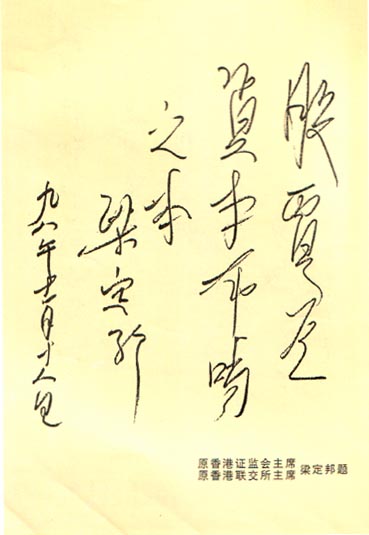 股
資本市場
之本
梁定邦
九八年十一月十八日
原香港证监会主席
原香港联交所主席 梁定邦题